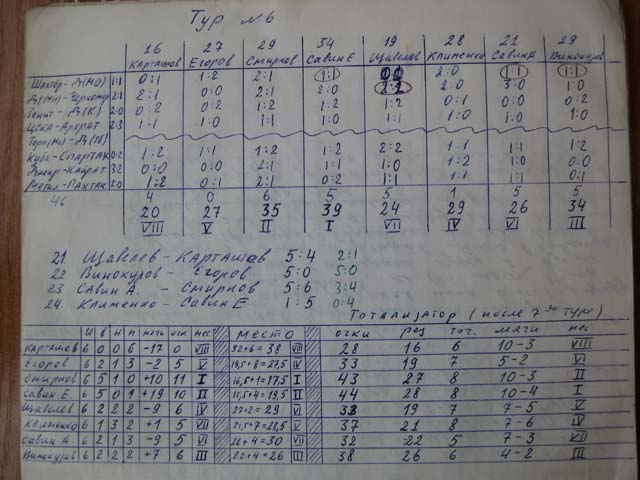 Тур № 6
26 27 29 34 19 28 21 29
Карташов Егоров Смирнов Савин Е Щавелев Клименко Савин А Винокуров
Шахтёр-Д(МО) 1:1 0:1 1:2 2:1 1:1 0:0 2:0 1:1 1:1
Д(Мн)-Черномор 2:1 2:1 0:0 2:1 2:0 2:1 2:0 3:0 1:0
Зенит-Д(К) 2:0 0:2 0:2 1:2 1:2 1:2 0:1 0:0 0:2
ЦСКА-Арарат 2:3 1:1 1:0 1:1 1:1 1:1 1:0 1:0 1:0
Куба-Спартак 0:2 1:2 1:1 1:2 1:2 2:2 1:1 1:1 1:2
Днепр-Кайрат 3:2 0:0 0:0 2:1 1:1 1:0 1:2 1:0 0:0
Метал-Пахтак 2:0 1:2 0:1 2:1 0:2 1:1 1:1 1:1 0:1
46 4 0 6 5 5 1 5 5
20 27 35 39 24 29 26 34
VIII V II I VII IV VI III
21. Щавелев - Карташов 5:4 2:1
22 Винокуров - Егоров 5:0 5:0
23 Савин А - Смирнов 5:6 3:4
24. Клименко - Савин Е 1:5 0:4
Тотализатор (после 7го тура)
И В Н П мячи очк мес. Место очки рез точ. мячи мес.
Карташев 6 0 0 6 -17 0 VIII 32+6=38 VIII 28 16 6 10-3 VIII
Егоров 6 2 1 3 -2 5 V 19,5+8=27,5 IV 33 19 7 5-2 VI
Смирнов 6 5 1 0 +10 11 I 16,5+1=17,5 I 43 27 8 10-3 II
Савин Е. 6 5 0 1 +19 10 II 15,5+4=19,5 II 44 28 8 10-4 I
Щавелев 6 2 2 2 -9 6 IV 27+2=29 VI 33 19 7 7-5 V
Клименко 6 1 3 2 +1 5 VII 21,5+7=28,5 V 37 21 8 7-6 IV
Савин А. 6 2 1 3 -9 5 VI 26+4=30 VII 32 22 5 7-3 VII
Винокуров 6 2 2 2 +7 6 III 22+4=26 III 38 26 6 4-2 III